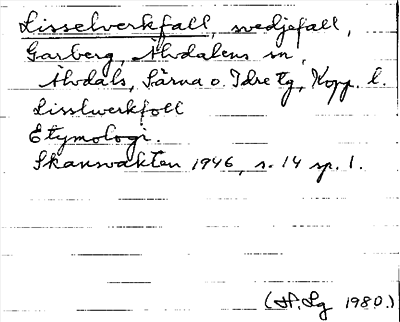 Lisselverkfall, svedjefall,
Garberg, Älvdalens sn,
Älvdals, Särna o. Idre tg, Kopp. l.
Lisslwerkfoll
Etymologi.
Skansvakten 1946, s. 14 sp. 1.
(H. Lg 1980.)